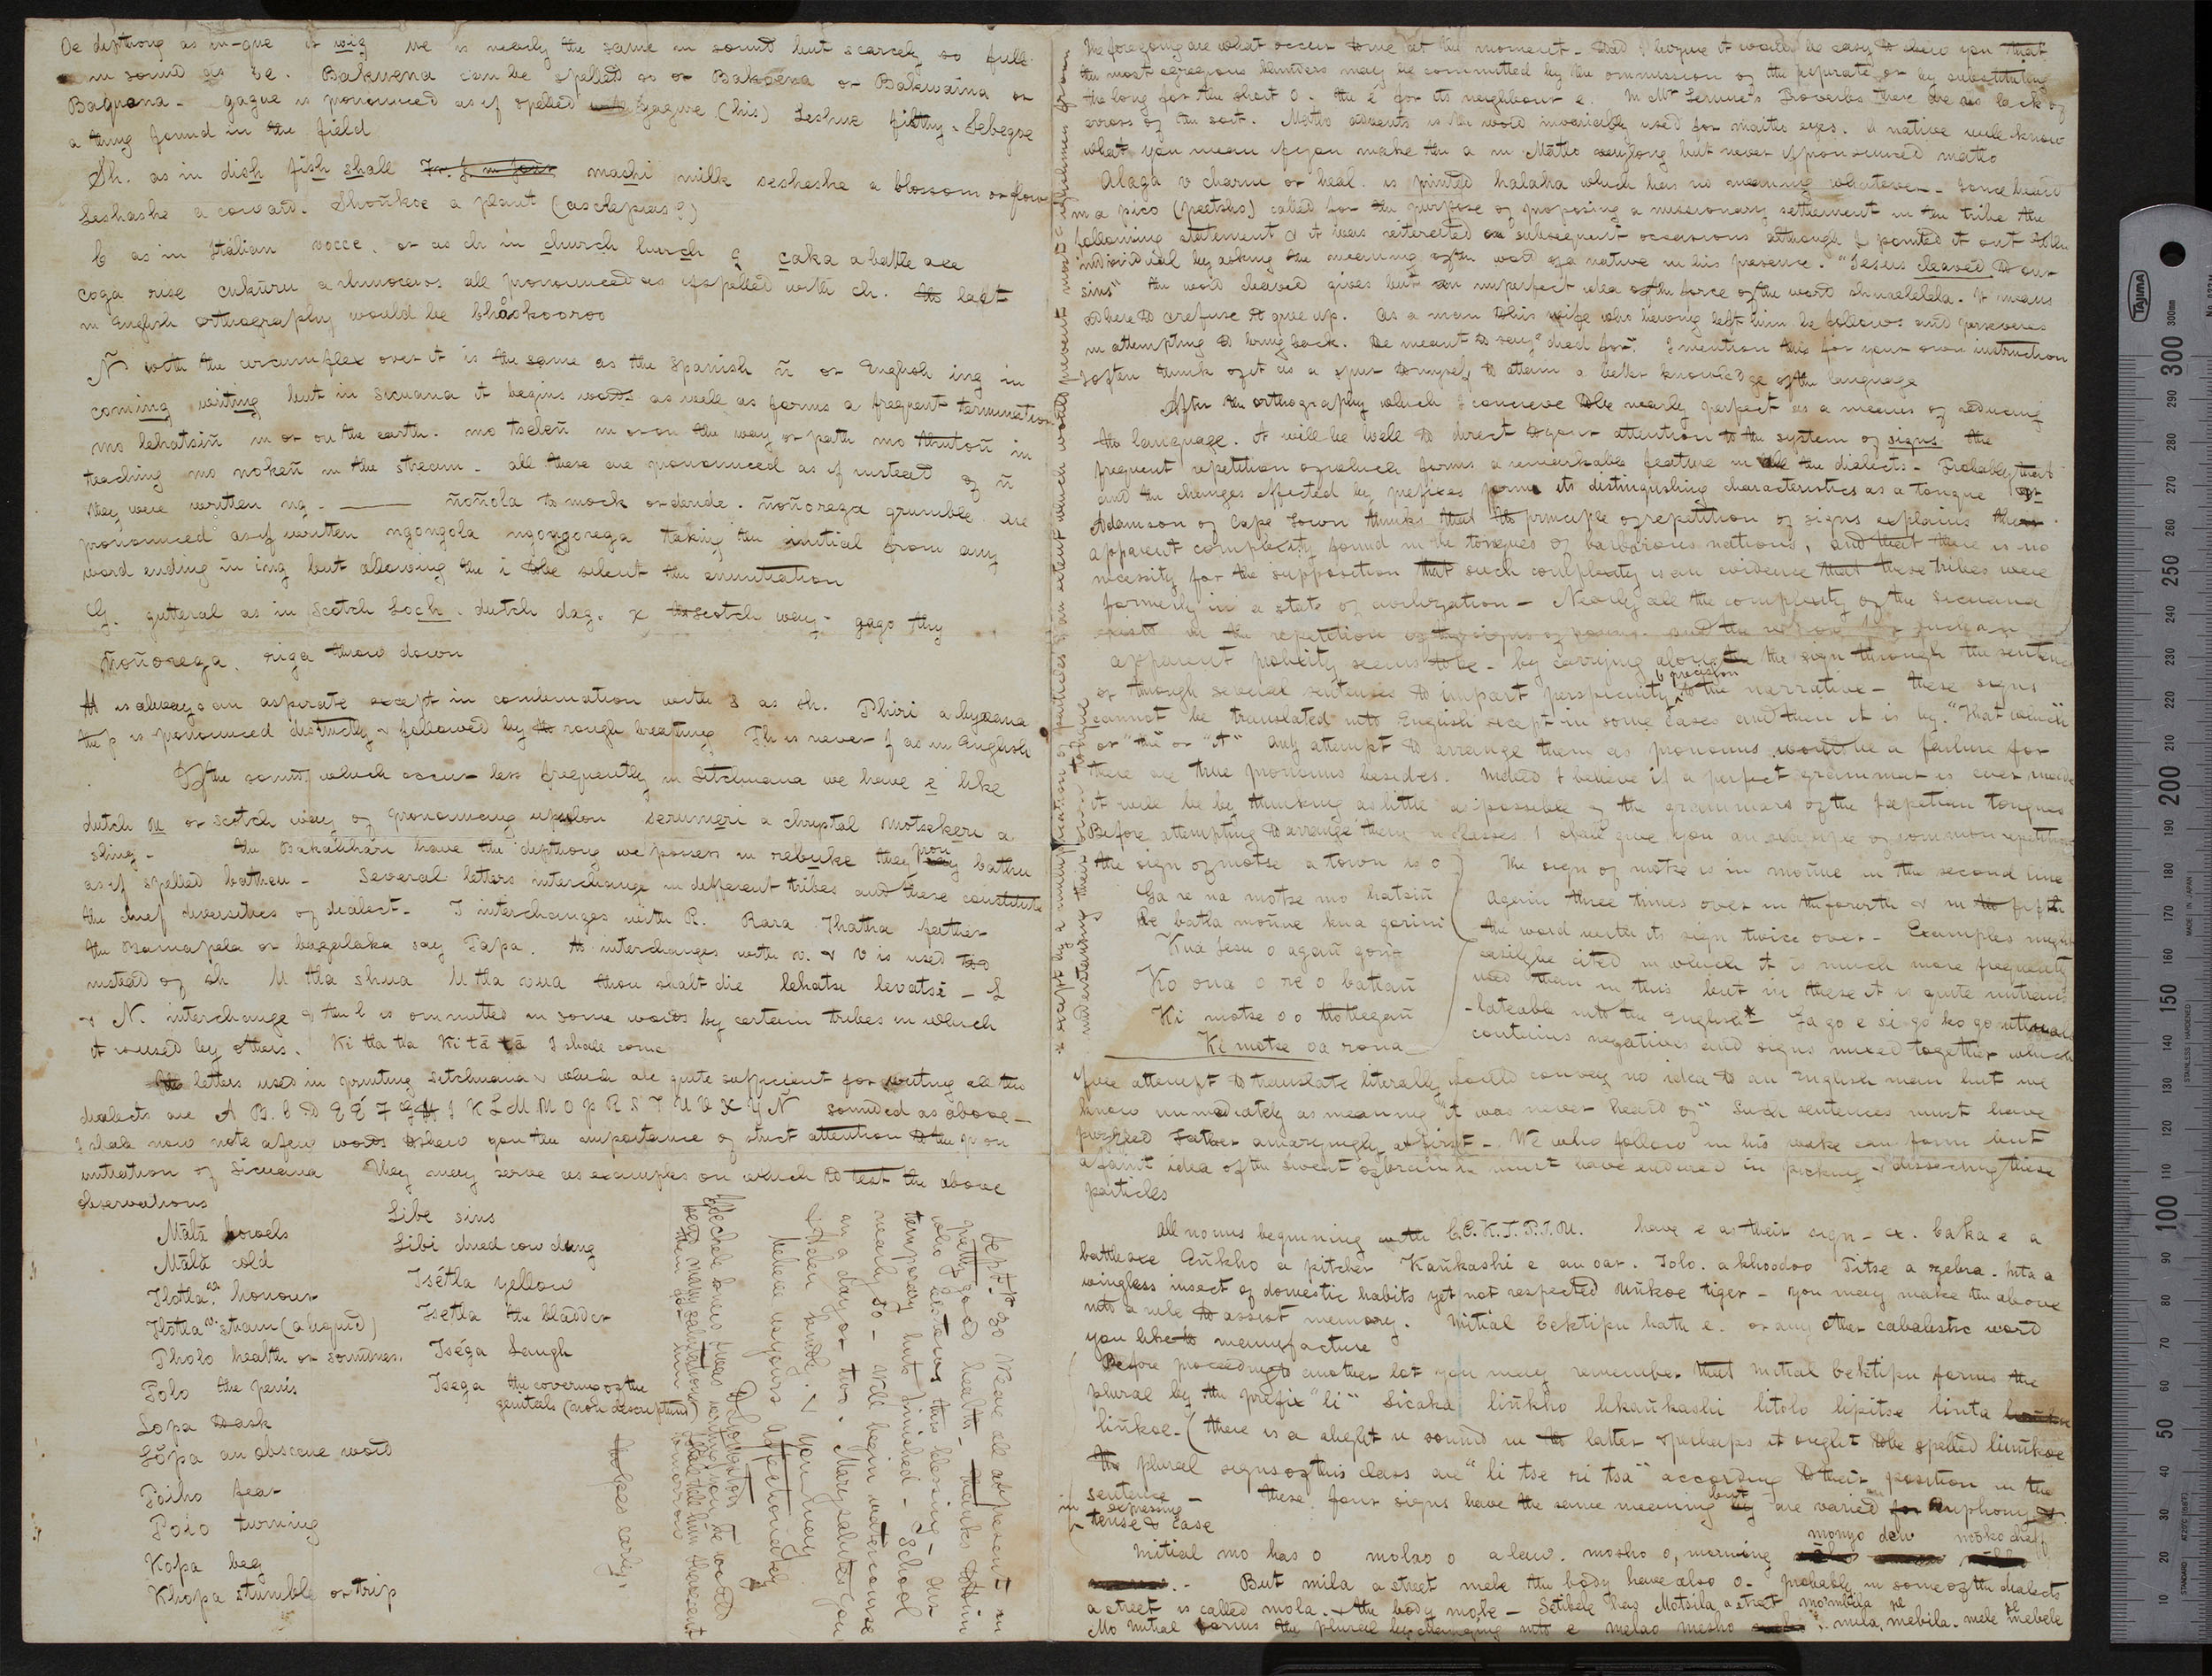 Oe dipthong as in-que is wig we is nearly the same in sound but scarcely so full
in sound as oe. Bakwena can be spelled so or Bakoena or Bakwaina or
Baquana - gague is pronounced as if spelled gagwe (his) Leshue filthy. Sebegoe
a thing found in the field
Sh. as in dish fish shall machi milk sesheshe a blossom or flower
Leshashe a coward. Shoñkoe a plant (asclepias?)
C as in Italian vocce, or as ch in church lurch caka a battle axe
Coga rise cukuru a rhinoceros all pronounced as if spelled with ch. the last
in English orthography would be chookooroo
Ñ with the circumflex over it is the same as the Spanish ñ or English ing in
coming waiting but in Secuana it begins words as well as forms a frequent termination
mo lehatsiñ in or on the earth. mo tseleñ in or on the way or path mo thutoñ in
teaching mo nokeñ in the stream - all these are pronounced as if instead of ñ
they were written ng - ñoñola to mock or deride. ñoñorega grumble are
pronounced as if written ngongola ngongorega taking the initial from any
word ending in ing but allowing the i to be silent the enuntiation
G. gutteral as in Scotch Loch. dutch dag. x the scotch way - gago thy
ñoñorega. riga throw down
H is always an asperate except in combination with s as sh. Phiri a hyaena
the p is pronounced distinctly & followed by the rough breathing Ph is never f as in English
Of the sounds which occur less frequently in Sitchuana we have e like
dutch u or scotch way of pronouncing upsilon serumeri a chrystal motsekeri a
sling - the Bakalihari have the dipthong we possess in rebuke they pron bathu
as if spelled batheu - Several letters interchange in different tribes and these constitute
the chief diversities of dialect - T interchanges with R. Rara Thatha father
the Bamapela or bagalaka say Tapa. H interchanges with v. & v is used too
instead of sh U tla shua U tla vua thou shalt die lehatse levatse - L
& N. interchange & the l is ommitted in some words by certain tribes in which
it is used by others. Ki tla tla Ki tā tā I shall come
The letters used in printing Setchuana & which are quite sufficient for writing all the
dialects are A B. C D E É F G H I K L M N O P R S T U V X Y Ñ sounded as above -
I shall now note a few words to shew you the importance of strict attention to the pron
untiation of Sicuana They may serve as examples on which to test the above
observations
Mālā bowels
Mālā cold
Tlotla honour
Tlotla strain (a liquid)
Pholo health or soundness
Polo the penis
Lopa to ask
Lŏpa an obscene word
Poiho fear
Poio turning
Kopa beg
Khopa stumble or trip
Libe sins
Libi dried cow dung
Tsétla yellow
Tsetla the bladder
Tséga Laugh
Tsega the covering of the
genitals (non descriptus)
Sept. 30 We are all at present in
pretty good health - thanks to him
who bestows this blessing - our
temporary hut finished - School
nearly so - Will begin watercourse
in a day or two. Mary salutes you
& Helen kindly. & you may
believe us yours affectionately
D Livingston
Sechele comes
he goes early.
The foregoing are what occur to me at the moment - Had I leisure it would be easy to shew you that
the most egregious blunders may be committed by the ommission of the asperate or by substituting
the long for the short o. the é for its neighbour e. In Mr Lemue's Proverbs there are no lack of
errors of this sort. Matlo is the word invariably used for maitlo eyes. A native will know
what you mean if you make the a in Mātlo very long but never if pronounced matlo
Alaga v charm or heal. is printed halaka which has no meaning whatever - I once heard
in a pico (peetsho) called for the purpose of proposing a missionary settlement in the tribe the
following statement & it was reiterated on subsequent occasions although I pointed it out to the
individual by asking the meaning of the word of a native in his presence. "Jesus cleaved to our
sins" the word cleaved gives but an imperfect idea of the force of the word shuaelela. It means
adhere to & refuse to give up. As a man to his wife who having left him he follows and perseveres
in attempting to bring back. He meant to say "died for". I mention this for your own instruction
I often think of it as a spur to myself to attain a better knowledge of the language
After the orthography which I conceive to be nearly perfect as a means of reducing
the language. it will be well to direct your attention to the system of signs the
frequent repetition of which forms a remarkable feature in all the dialects - Probably that
and the changes effected by prefixes forms its distinguishing characteristics as a tongue Dr
Adamson of Cape Town thinks that the principle of repetition of signs explains the
apparent complexity found in the tongues of barbarous nations, and that there is no
necessity for the supposition that such complexity is an evidence that these tribes were
formerly in a state of civilization - Nearly all the complexity of the Sicuana
exists in the repetition of the signs of nouns. and the reason for such an
apparent prolixity seems to be - by carrying along the sign through the sentence
or through several sentences to impart perspicuity & precision to the narrative - these signs
cannot be translated into English except in some cases and then it is by "that which"
or "the" or "it" any attempt to arrange them as pronouns would be a failure for
there are true pronouns besides. Indeed I believe if a perfect grammar is ever made
it will be by thinking as little as possible of the grammars of the European tongues
Before attempting to arrange them in classes I shall give you an example of common repetition
the sign of motse a town is o
Ga re na motse mo hatsiñ
Re batla moñue kua gorimo
Kua Jesu o agañ goñ
Ko ona o re o batlañ
Ki motse oo tlotlegañ
Ki motse oa rona
The sign of motse is in moñue in the second line
Again three times over in the fourth & in the fifth
the word with its sign twice over - Examples might
easily be cited in which it is much more frequently
used than in this but in these it is quite untrans
-lateable into the English* Ga go e si go ko go utluale
contains negatives and signs mixed together which
if we attempt to translate literally would convey no idea to an English man but we
know immediately as meaning "it was never heard of" Such sentences must have
puzzled Father amazingly at first - We who follow in his wake can form but
a faint idea of the sweat of brain he must have endured in picking & dissecting these
particles
All nouns beginning with C.E.K.T.P.I.N. have e as their sign - ex. Caka e a
battleaxe Eñkho a pitcher Kañkashi e an oar. Tolo. a khoodoo Pitse a zebra. Nta a
wingless insect of domestic habits yet not respected Nñkoe tiger - you may make the above
into a rule to assist memory. Initial Cektipn hath e. or any other cabalistic word
you like to manufacture
Before proceeding to another lot you may remember that initial bektipn forms the
plural by the prefix "li" Licaka liñkho likañkashi litolo lipitse linta
liñkoe - (there is a slight n sound in the latter & perhaps it ought to be spelled linñkoe
The plural signs of this class are "li tse ri tsa" according to their position in the
sentence - these four signs have the same meaning but are varied for euphony &
in expressing
tense & case
Initial mo has o molao o a law. mosho o, morning monyo dew mooko chaff
But mila a street mele the body have also o - probably in some of the dialects
a street is called mola. & the body mole - Setibele has Motsila a street mombila
Mo initial forms the plural by changing into e melao mesho mila, mebila. mele mebele
* except by a multiplication of particles to an extent which would prevent most Englishmen from
understanding their own mother tongue